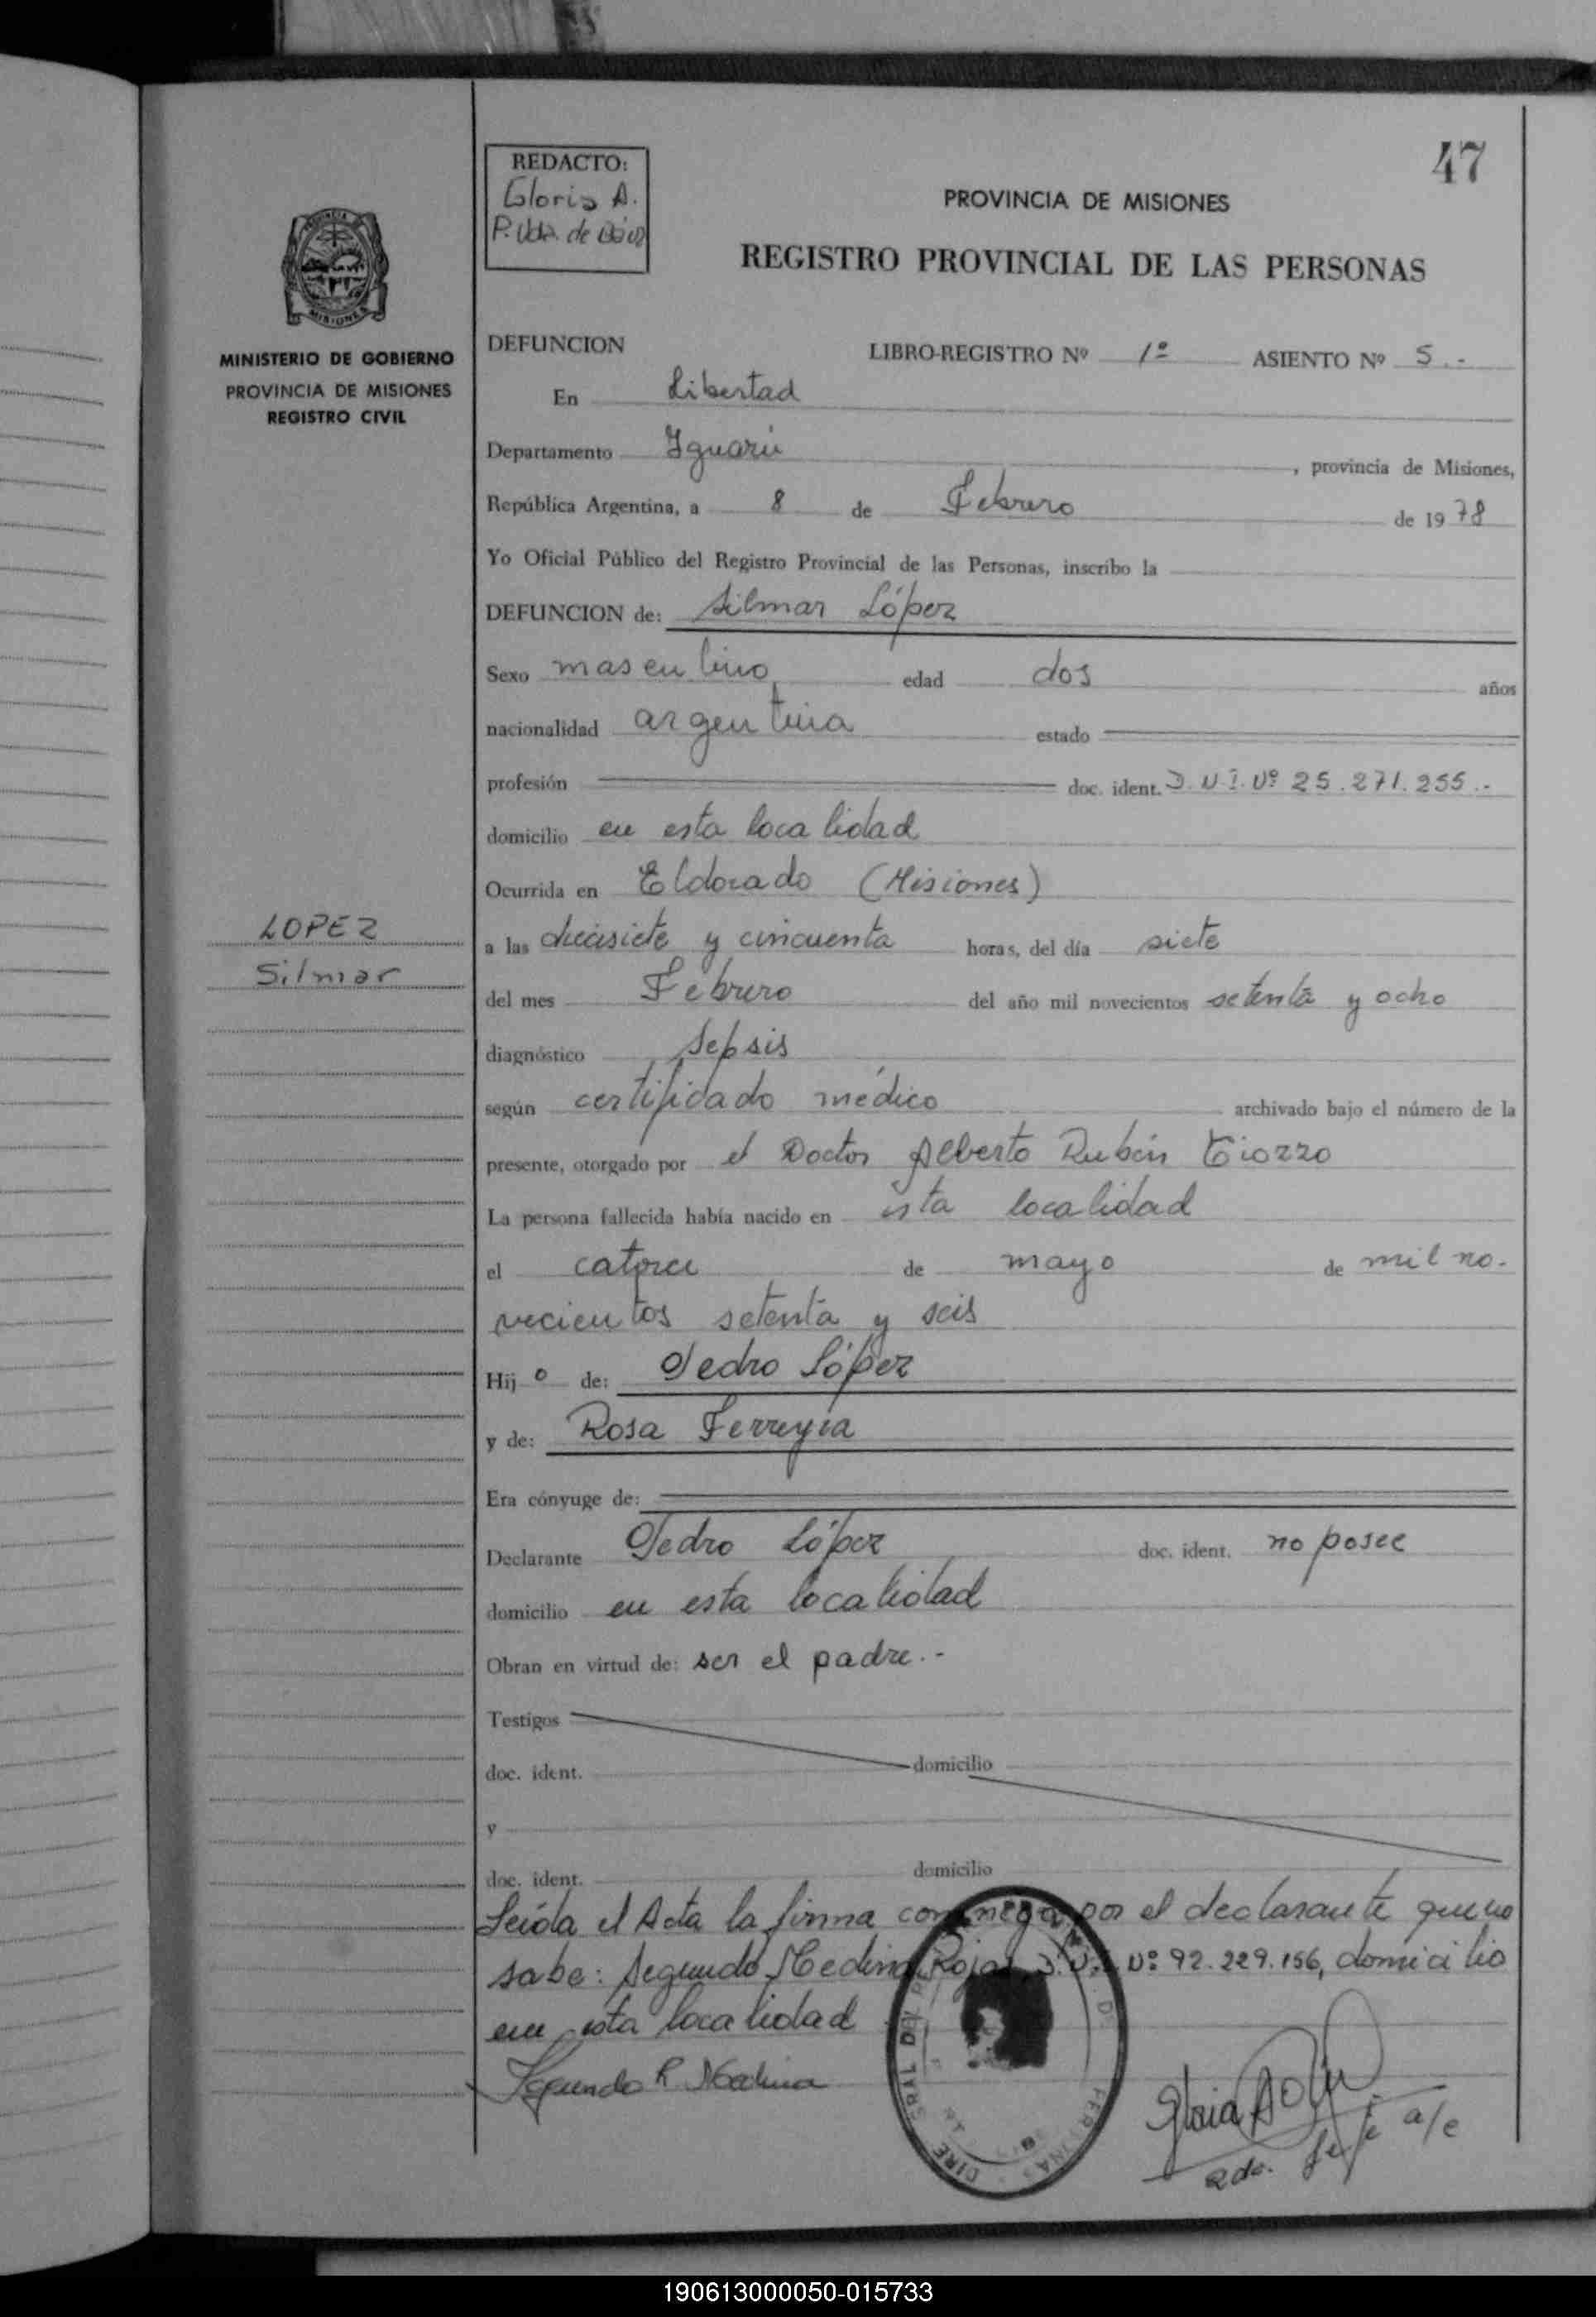 47
REDACTO:
Gloria A.
P. Vda. de
PROVINCIA DE MISIONES
REGISTRO PROVINCIAL DE LAS PERSONAS
MISIONES
MINISTERIO DE GOBIERNO
PROVINCIA DE MISIONES
REGISTRO CIVIL
DEFUNCION LIBRO-REGISTRO Nº 1º ASIENTO Nº 5.-
En Libertad
Departamento Iguazú, provincia de Misiones,
República Argentina, a 8 de Febrero de 1978
Yo Oficial Público del Registro Provincial de las Personas, inscribo la
DEFUNCION de: Silmar López
Sexo masculino edad dos años
nacionalidad argentina estado
profesión doc. ident. D.N.I. Nº 25.271.255.-
domicilio en esta localidad
Ocurrida en Eldorado (Misiones)
LOPEZ
Silmar
a las diecisiete y cincuenta horas, del día siete
del mes Febrero del año mil novecientos setenta y ocho
diagnóstico Sepsis
según certificado médico archivado bajo el número de la
presente, otorgado por el Doctor Alberto Rubén Tiozzo
La persona fallecida había nacido en esta localidad
el catorce de mayo de mil no-
vecientos setenta y seis
Hijo de: Pedro López
y de: Rosa Ferreyra
Era cónyuge de:
Declarante Pedro López doc. ident. no posee
domicilio en esta localidad
Obran en virtud de: ser el padre.-
Testigos
doc. ident. domicilio
y
doc. ident. domicilio
Leída el Acta la firma conmigo por el declarante que no
sabe: Segundo Medina Rojas D.N.I. Nº 92.229.156, domicilio
en esta localidad
Segundo R Medina
Gloria
a/c
190613000050-015733